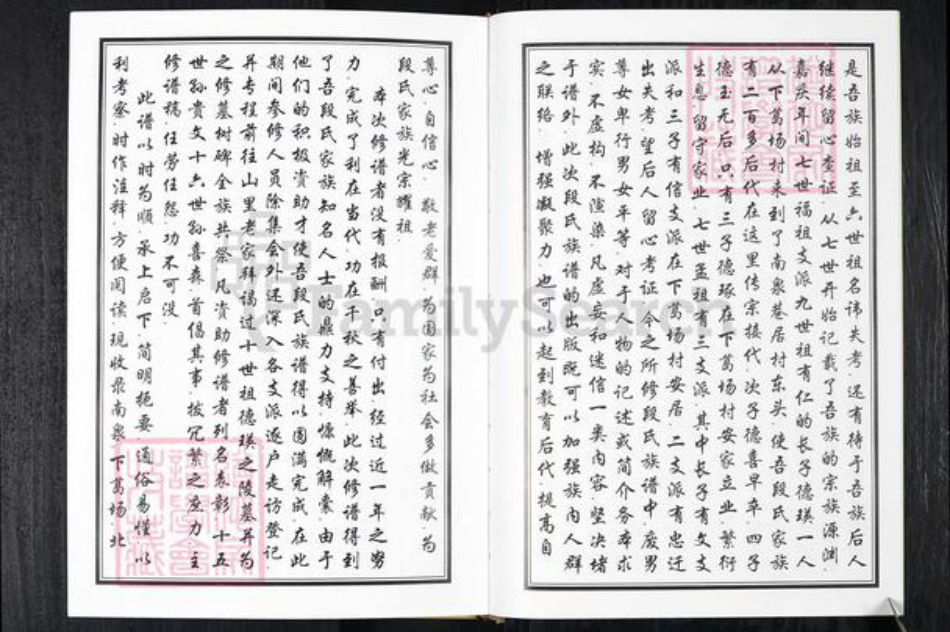 是吾族始祖至六世祖名讳失考.还有待于吾族后人
继续留心查证.从七世开始记载了吾族的宗族源渊.
嘉庆年间七世福祖支派九世祖有仁的长子德瑛一人
从下葛场村来到了南泉巷居村东头.使吾段氏家族
有二百多后代在这里传宗接代.次子德喜早卒.四子
德玉无后.只有三子德琢在下葛场村安家立业.繁衍
生息.留守家业.七世孟祖有三支派.其中长子有文支
派和三子有信支派在下葛场村安居.二支派有忠迁
出失考.望后人留心考证.今之所修段氏族谱中废男
尊女卑行男女平等.对于人物的记述或简介务本求
实.不虚构.不渲染.凡虚妄和迷信一类内容.坚决堵
于谱外.此次段氏族谱的出版既可以加强族内人群
之联络.增强凝聚力.也可以起到教育后代.提高自
尊心.自信心.敬老爱群.为国家为社会多做贡献.为
段氏家族光宗耀祖.
本次修谱者没有报酬.只有付出.经过近一年之努
力.完成了利在当代.功在千秋之善举.此次修谱得到
了吾段氏家族知名人士的鼎力支持.慷慨解囊.由于
他们的积极资助才使吾段氏族谱得以圆满完成.在此
期间参修人员除集会外还深入各支派逐户走访登记.
并专程前往山里老家拜谒过十世祖德瑛之陵墓并为
之修墓树碑全族共祭.凡资助修谱者列名表彰.十五
世孙贵文十六世孙喜森首倡其事.披冗繁之庶力.主
修谱稿.任劳任怨.功不可没.
此谱以时为顺.承上启下.简明扼要.通俗易懂.以
利考察.时作注释.方便阅读.现收录南泉.下葛场.北
FamilySearch